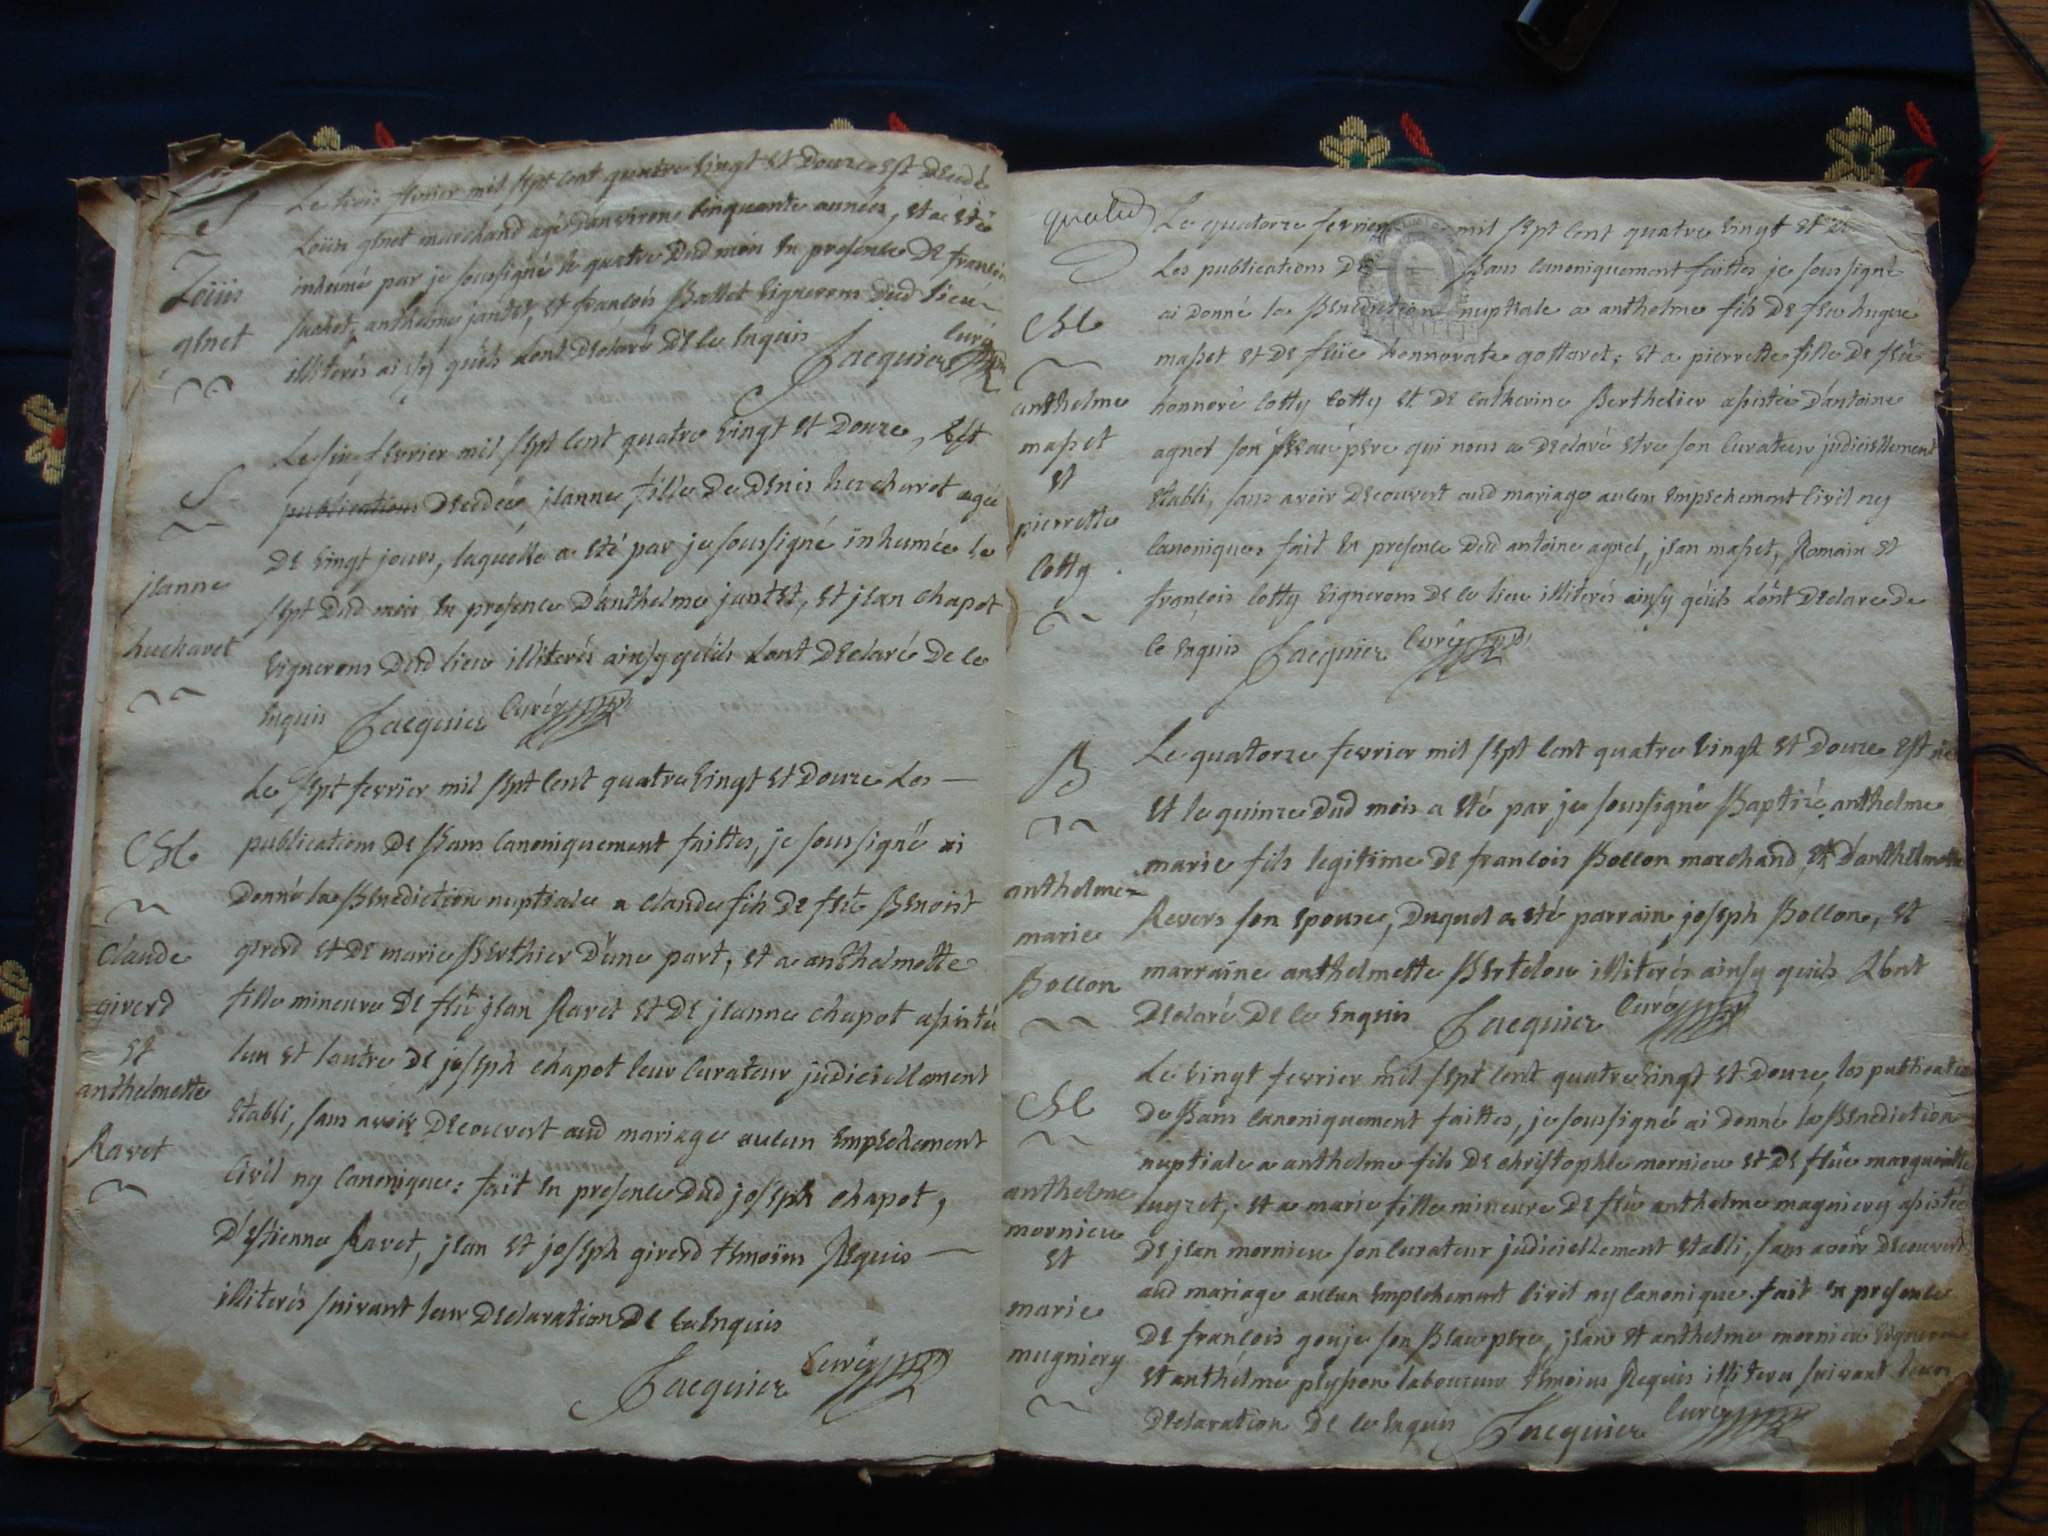 S
Loüis
genet
Le trois fevrier mil sept cent quatre vingt et Douze est Decedé
Loüis genet marchand agé d'environ cinquante années, et a eté
inhumé par je soussigné le quatre Dud mois En presence De francois
suchet, anthelme jantet, et francois Ballet vignerons dud lieu
illiterés ainsy qu'ils L'ont Declaré De ce Enquis Jacquier Curé
S
jeanne
huchavet
Le six fevrier mil sept cent quatre vingt et Douze, Est
publications Decedée jeanne, fille De Denis huchavet agée
De vingt jours, laquelle a eté par je soussigné inhumée le
sept Dud mois, En presence D'anthelme jantet, et jean chapot
vignerons Dud lieu illiterés ainsy qu'ils L'ont Declaré De ce
Enquis Jacquier Curé
Claude
girerd
et
anthelmette
Ravet
Le sept fevrier mil sept cent quatre vingt et Douze Les
publications De Bans canoniquement faittes, je soussigné ai
Donné la Benediction nuptiale a claude fils De feu Benoist
girerd et De marie Berthier D'une part, et a anthelmette
fille mineure De feu jean Ravet et De jeanne chapot assistés
l'un et l'autre De joseph chapot leur Curateur judiciellement
etabli, sans avoir Decouvert aud mariage aucun Empechement
civil ny canonique: fait En presence Dud joseph chapot,
D'estienne Ravet, jean et joseph girerd temoins Requis
illiterés suivant leur Declaration De ce Enquis
Jacquier Curé
anthelme
masset
et
pierrette
Cotty
Le quatorze fevrier mil sept cent quatre vingt et
Les publications De Bans canoniquement faittes je soussigné
ai donné la Benediction nuptiale a anthelme fils De feu hugue
masset et De feüe honnorate gottaret; et a pierrette fille De feu
honnoré Cotty Cotty et De Catherine Berthelier assistée D'antoine
agnet son Beau pere qui nous a Declaré etre son Curateur judiciellement
etabli, sans avoir Decouvert aud mariage aucun Empechement civil ny
canonique: fait En presence Dud antoine agnet, jean masset, Romain et
françois Cotty vignerons De ce lieu illiterés ainsy qu'ils L'ont Declaré de
ce Enquis Jacquier Curé
B
anthelme
marie
Bollon
Le quatorze fevrier mil sept cent quatre vingt et Douze Est né
Et le quinze Dud mois a eté par je soussigné Baptizé anthelme
marie fils legitime De francois Bollon marchand, et D'anthelmette
Revers son Epouse, Duquel a eté parrain joseph Bollon, et
marraine anthelmette Bertelon illiterés ainsy qu'ils L'ont
Declaré De ce Enquis Jacquier Curé
anthelme
mornieu
et
marie
mugniery
Le vingt fevrier mil sept cent quatre vingt et Douze, les publications
De Bans canoniquement faittes, je soussigné ai donné la Benediction
nuptiale a anthelme fils De christophle mornieu et De feüe marguerite
et a marie fille mineure De feu anthelme magniery assistée
De jean mornieu son Curateur judiciellement etabli, sans avoir Decouvert
aud mariage aucun Empechement civil ny canonique. fait En presence
De françois gouje son Beau pere, jean et anthelme mornieu vignerons
et anthelme laboureur temoins Requis illiteres suivant leur
Declaration De ce Enquis Jacquier Curé